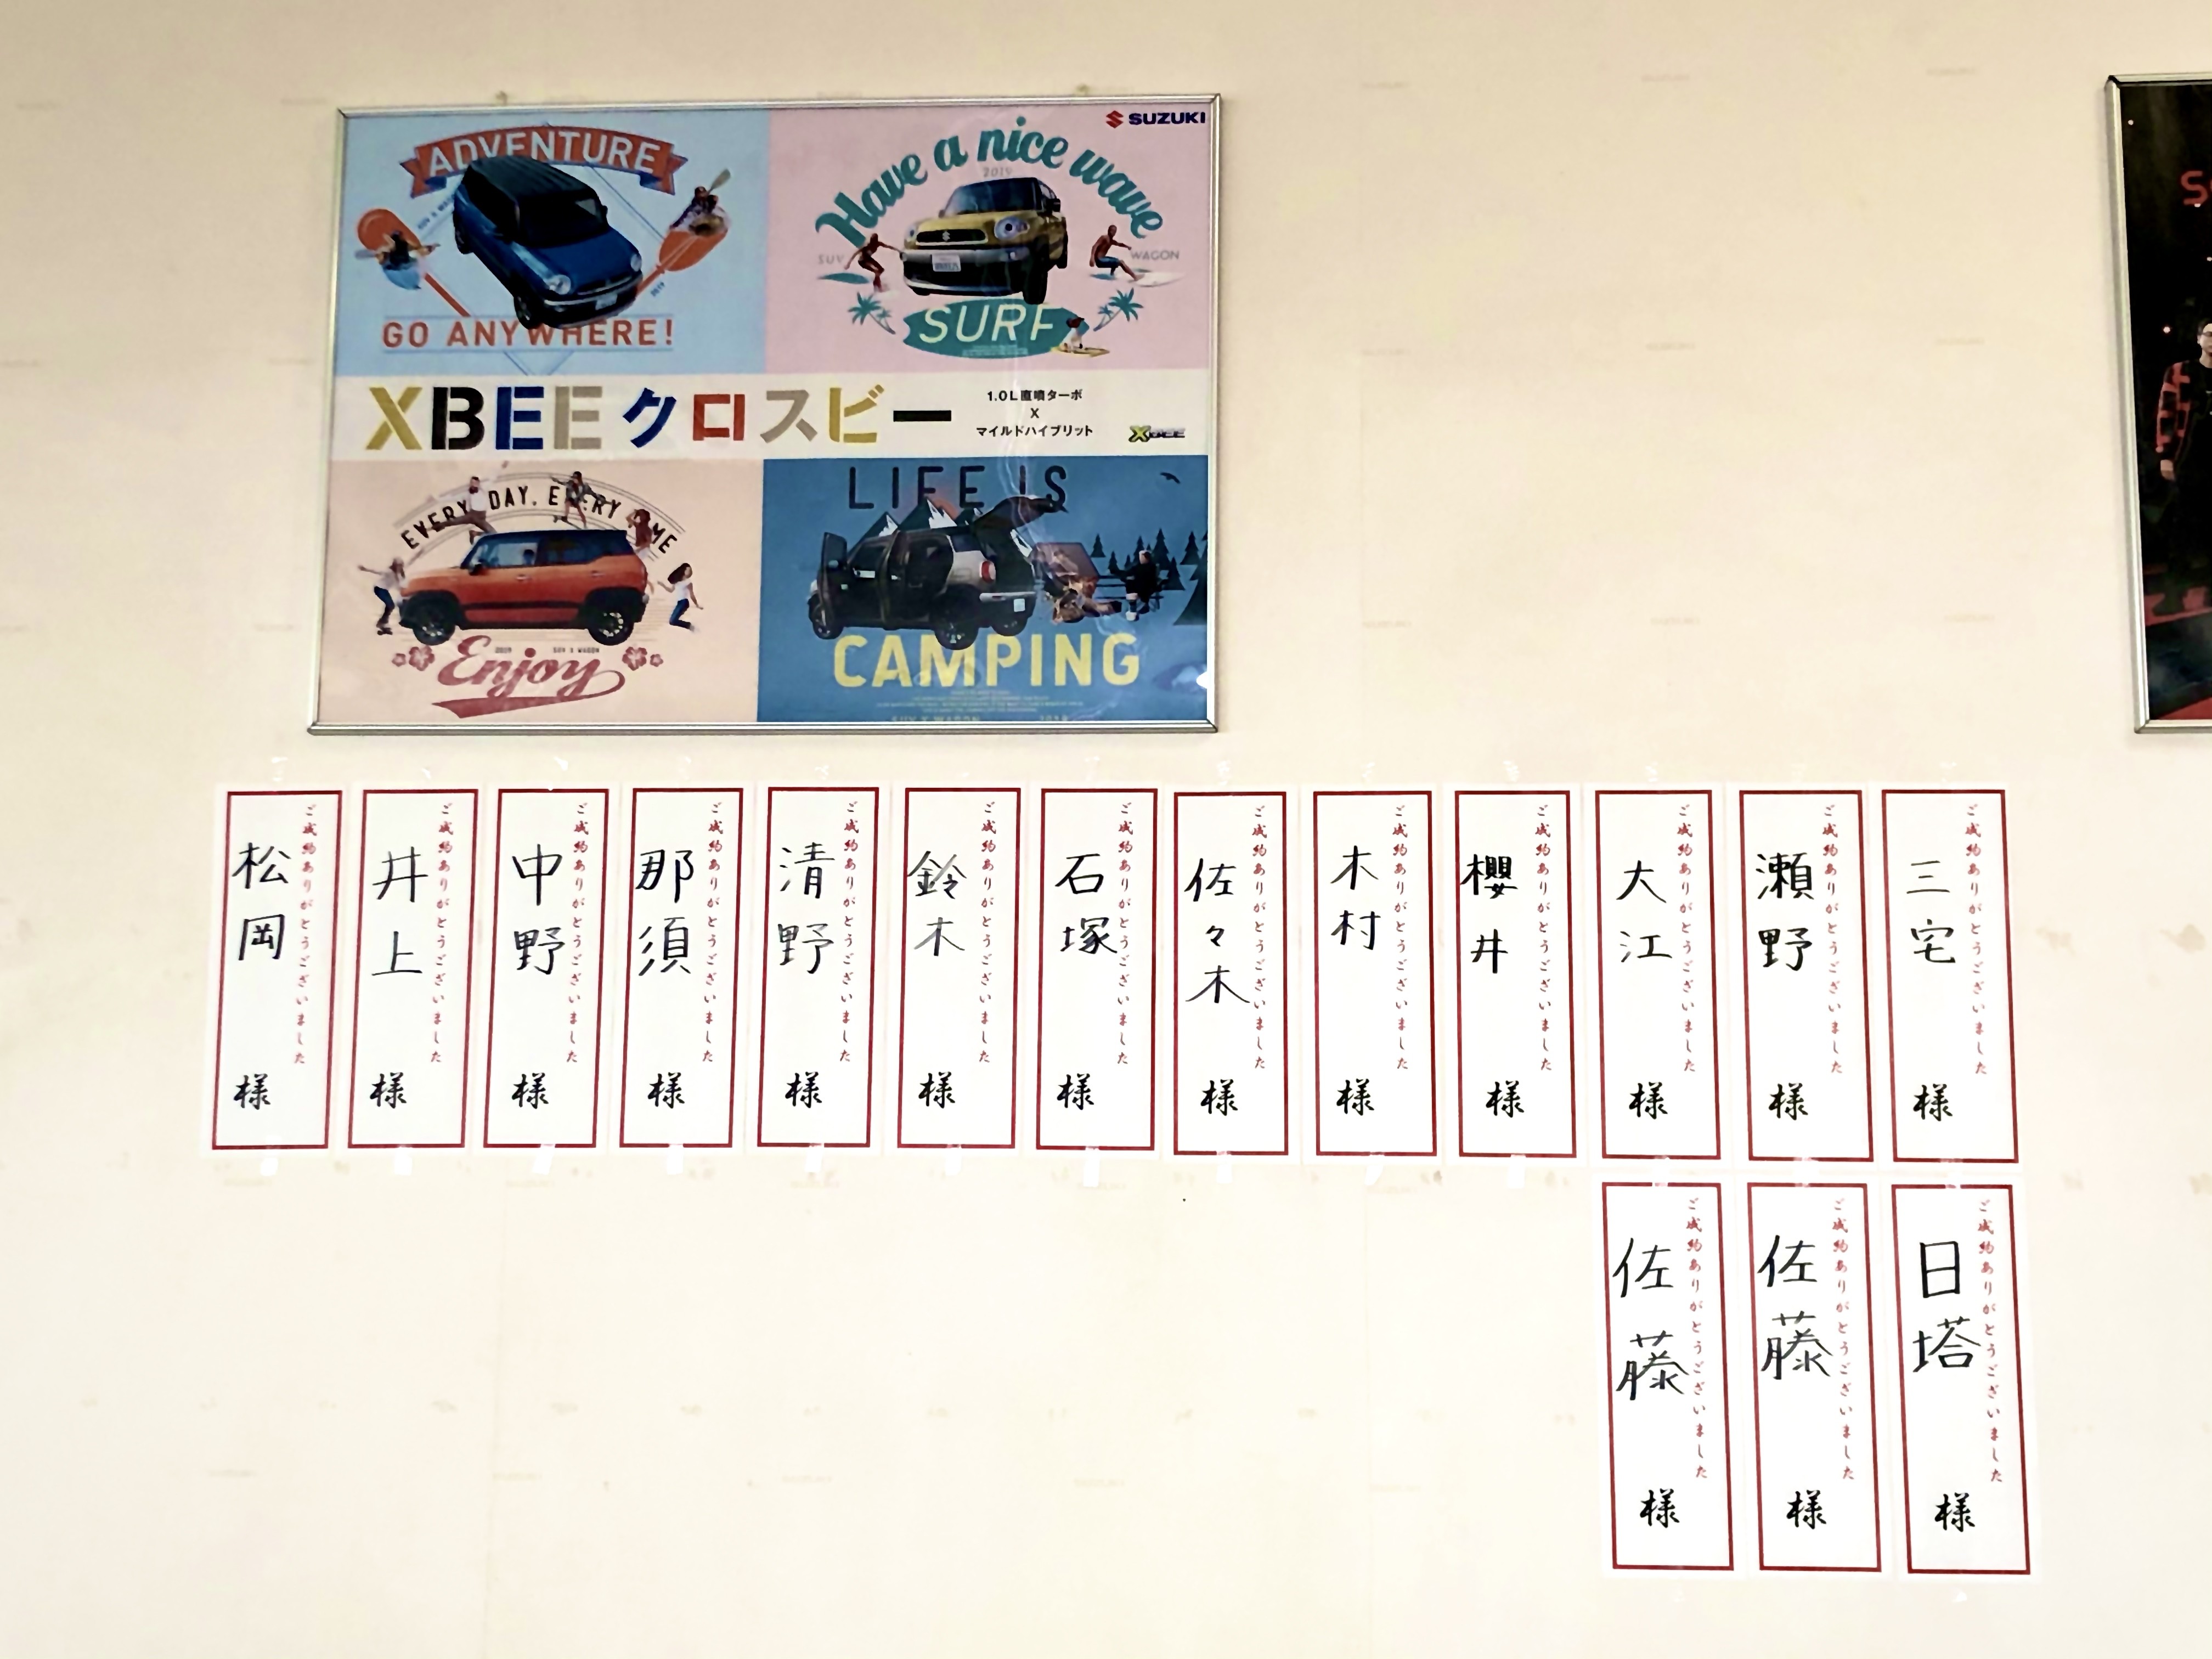 SUZUKI
ADVENTURE
GO ANYWHERE!
Have a nice wave
2019
SUV
WAGON
SURF
XBEE クロスビー
1.0L直噴ターボ
X
マイルドハイブリット
XBEE
EVERY DAY. EVERY TIME
2019
SUV X WAGON
Enjoy
LIFE IS
CAMPING
ご成約ありがとうございました
三宅 様
ご成約ありがとうございました
瀬野 様
ご成約ありがとうございました
大江 様
ご成約ありがとうございました
櫻井 様
ご成約ありがとうございました
木村 様
ご成約ありがとうございました
佐々木 様
ご成約ありがとうございました
石塚 様
ご成約ありがとうございました
鈴木 様
ご成約ありがとうございました
清野 様
ご成約ありがとうございました
那須 様
ご成約ありがとうございました
中野 様
ご成約ありがとうございました
井上 様
ご成約ありがとうございました
松岡 様
ご成約ありがとうございました
日塔 様
ご成約ありがとうございました
佐藤 様
ご成約ありがとうございました
佐藤 様